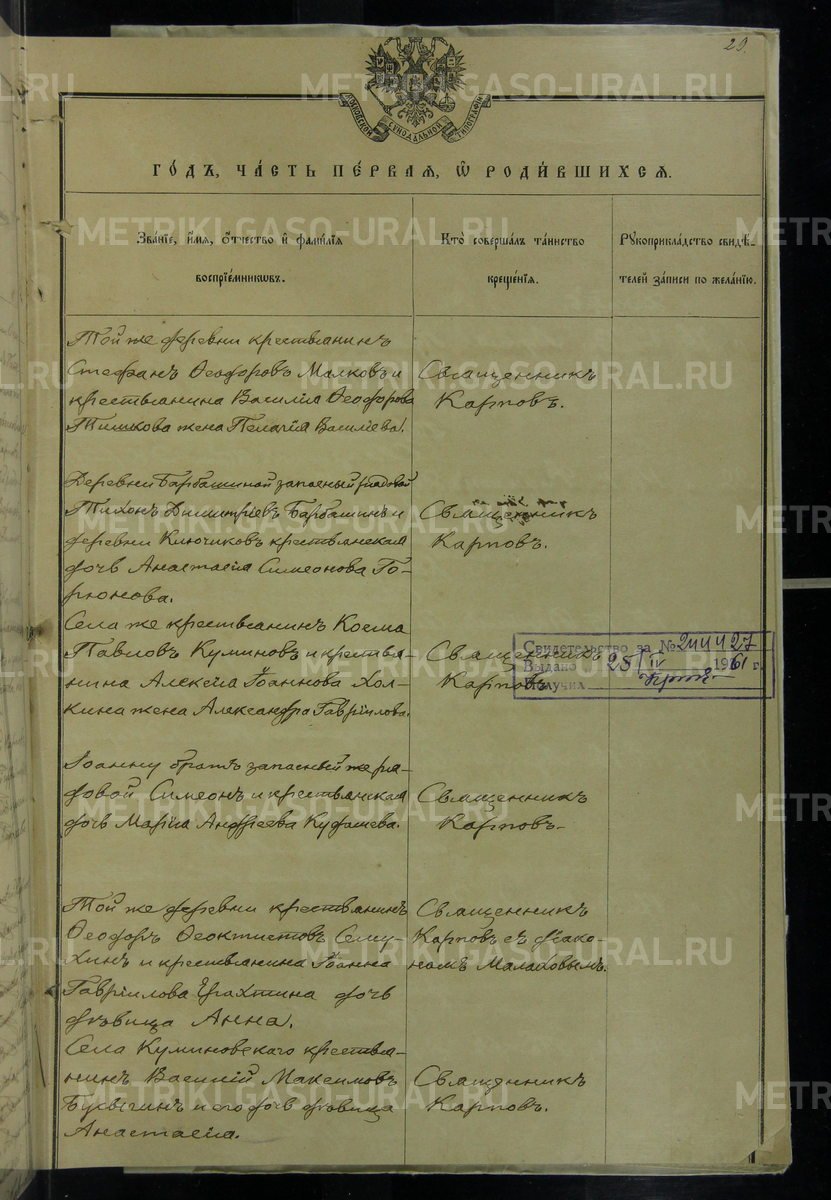 29.
МОСКОВСКОЙ СѴНОДАЛЬНОЙ ТИПОГРАФІИ
ГО́ДЪ, ЧА́СТЬ ПЕ́РВАЯ, Ѡ҆ РОДИ́ВШИХСЯ.
Зва́нїе, и҆́мя, ѻ҆́тчество и҆ фами́лїя
воспрїе́мникѡвъ.
Кто̀ соверша́лъ та́инство
креще́нїя.
Рꙋкоприкла́дство свидѣ́-
телей за́писи по жела́нїю.
Той же деревни крестьянинъ
Стефанъ Ѳеодоровъ Малковъ и
крестьянина Василія Ѳеодорова
Тишкова жена Пелагія Василіева.
Священникъ
Карповъ.
Деревни Барбашиной запасный рядовой
Тихонъ Димитріевъ Барбашинъ и
деревни Ключиковъ крестьянская
дочь Анастасія Симеонова Го-
рюнова.
Священникъ
Карповъ.
Села же крестьянинъ Косма
Павловъ Куминовъ и крестья-
нина Алексія Іоаннова Хол-
кина жена Александра Гавріилова.
Священникъ
Карповъ
Свидетельство за № 244427
Выдано 25/IV 1961 г.
Получил
Іоанну братъ запасный же ря-
довой Симеонъ и крестьянская
дочь Марія Андреева Кудашева.
Священникъ
Карповъ.
Той же деревни крестьянинъ
Ѳеодоръ Ѳеоктистовъ Сему-
хинъ и крестьянина Іоанна
Гавріилова дочь
дѣвица Анна.
Священникъ
Карповъ съ діако-
номъ Малаховымъ.
Села Куминовскаго крестья-
нинъ Василій Максимовъ
и его дочь дѣвица
Анастасія.
Священникъ
Карповъ.
METRIKI.GASO-URAL.RU